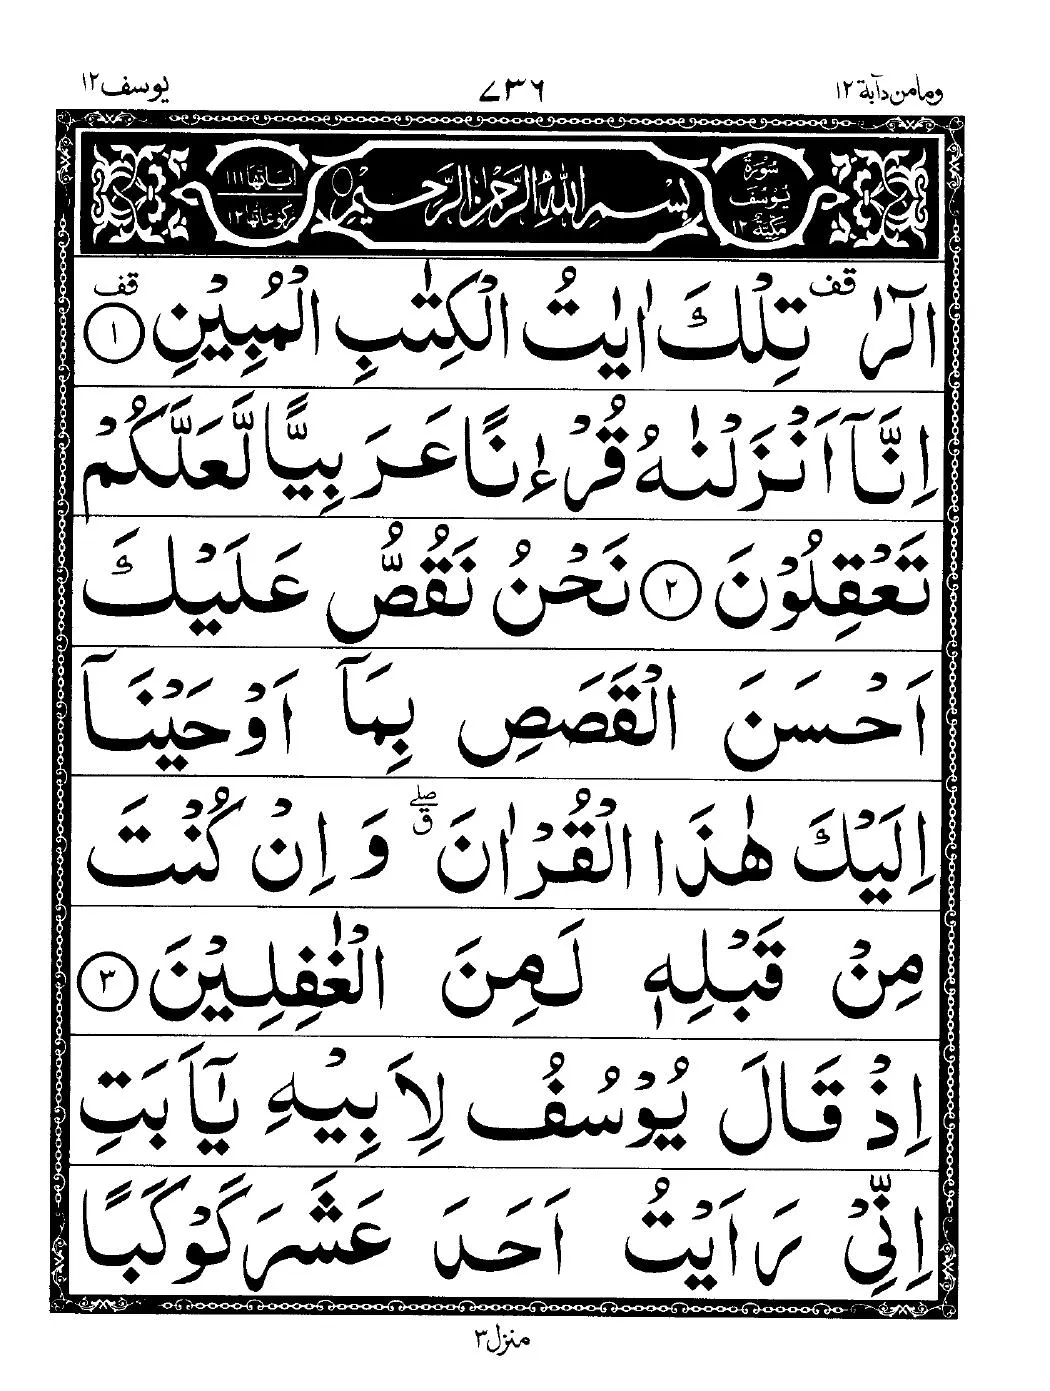 وما من دآبة ١٢
٧٣٦
يوسف ١٢
سُوْرَةُ يُوْسُفَ مَكِّيَّةٌ ١٢
بِسْمِ اللهِ الرَّحْمٰنِ الرَّحِيْمِ
اٰيَاتُهَا ١١١ رُكُوْعَاتُهَا ١٢
الٓرٰ قف تِلْكَ اٰيٰتُ الْكِتٰبِ الْمُبِيْنِ قف ١
اِنَّآ اَنْزَلْنٰهُ قُرْءٰنًا عَرَبِيًّا لَّعَلَّكُمْ
تَعْقِلُوْنَ ٢ نَحْنُ نَقُصُّ عَلَيْكَ
اَحْسَنَ الْقَصَصِ بِمَآ اَوْحَيْنَآ
اِلَيْكَ هٰذَا الْقُرْاٰنَ ق صلے وَاِنْ كُنْتَ
مِنْ قَبْلِهٖ لَمِنَ الْغٰفِلِيْنَ ٣
اِذْ قَالَ يُوْسُفُ لِاَبِيْهِ يٰٓاَبَتِ
اِنِّيْ رَاَيْتُ اَحَدَ عَشَرَ كَوْكَبًا
منزل ٣